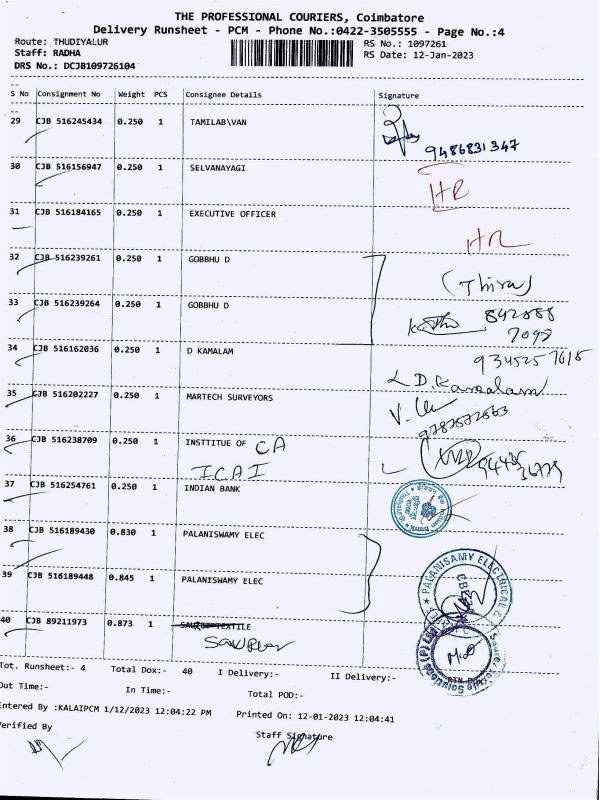 THE PROFESSIONAL COURIERS, Coimbatore
Delivery Runsheet - PCM - Phone No.:0422-3505555 - Page No.:4
Route: THUDIYALUR RS No.: 1097261
Staff: RADHA RS Date: 12-Jan-2023
DRS No.: DCJB109726104
S No Consignment No Weight PCS Consignee Details Signature
29 CJB 516245434 0.250 1 TAMILAB\VAN
9486831347
30 CJB 516156947 0.250 1 SELVANAYAGI
HR
31 CJB 516184165 0.250 1 EXECUTIVE OFFICER
HR
32 CJB 516239261 0.250 1 GOBBHU D
(Thira)
33 CJB 516239264 0.250 1 GOBBHU D
34 CJB 516162036 0.250 1 D KAMALAM
D. Kamalam
35 CJB 516202227 0.250 1 MARTECH SURVEYORS
36 CJB 516238709 0.250 1 INSTTITUE OF CA
ICAI
37 CJB 516254761 0.250 1 INDIAN BANK
38 CJB 516189430 0.830 1 PALANISWAMY ELEC
39 CJB 516189448 0.845 1 PALANISWAMY ELEC
PALANISAMY ELECTRICAL
40 CJB 89211973 0.873 1 TEXTILE
Tot. Runsheet:- 4 Total Dox:- 40 I Delivery:- II Delivery:- RTN DOX:-
Out Time:- In Time:- Total POD:-
Entered By :KALAIPCM 1/12/2023 12:04:22 PM Printed On: 12-01-2023 12:04:41
Verified By Staff Signature